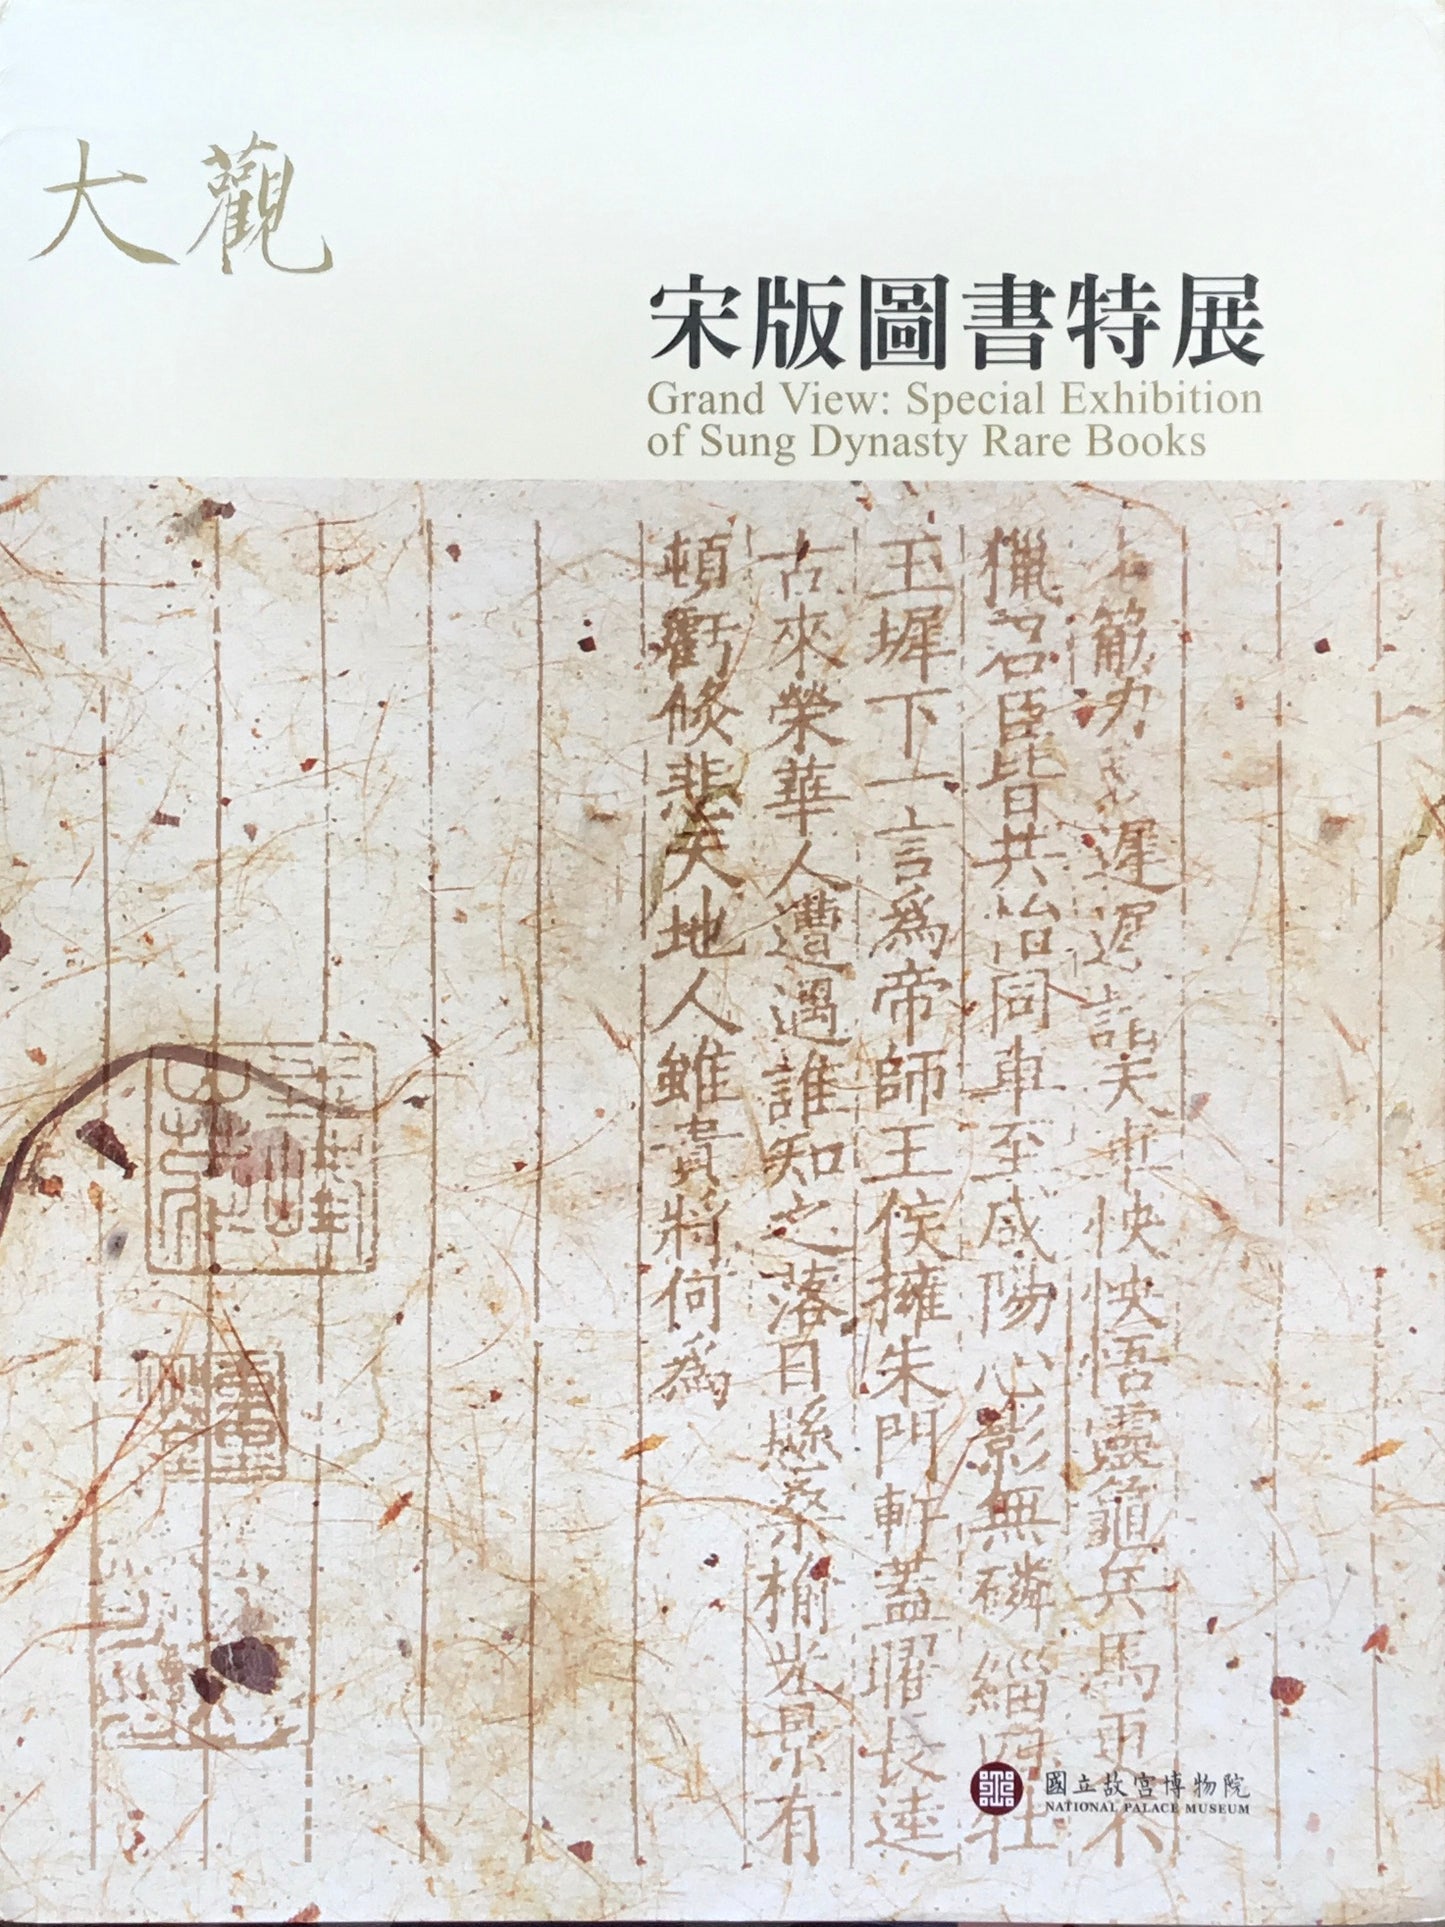 大觀
宋版圖書特展
Grand View: Special Exhibition
of Sung Dynasty Rare Books
遲遲詣天車怏怏悟靈龜兵馬更不
獵名臣皆共治同車至咸陽心影無磷緇四壯
玉墀下一言為帝師王侯擁朱門軒蓋曜長逵
古來榮華人遭遇誰知之落日懸桑榆光景有
頓虧倏悲天地人雖貴將何為
國立故宮博物院
NATIONAL PALACE MUSEUM